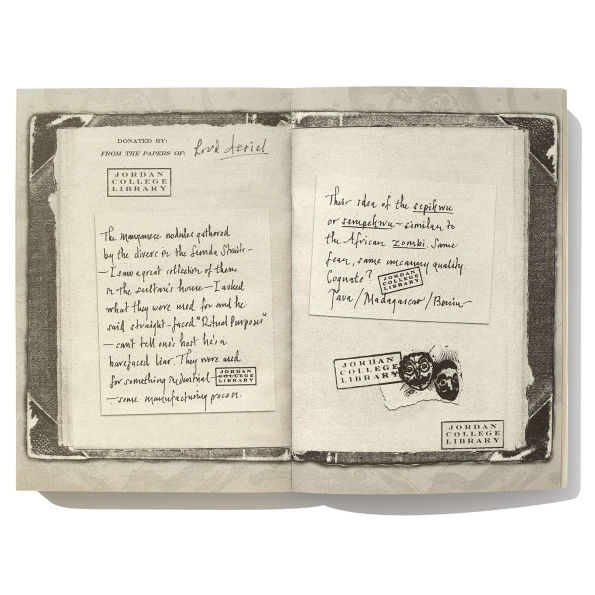 DONATED BY:
FROM THE PAPERS OF: Lord Asriel
JORDAN
COLLEGE
LIBRARY
The manganese nodules gathered
by the divers in the Sunda Straits –
– I saw a great collection of them
in the sultan's house – I asked
what they were used for and he
said straight-faced "Ritual Purposes"
– can't tell one's host he's a
barefaced liar. They were used
for something industrial –
JORDAN
COLLEGE
LIBRARY
– some manufacturing process.
Their idea of the sepikwu
or sempekwu – similar to
the African zombi. Same
fear, same uncanny quality.
Cognate?
JORDAN
COLLEGE
LIBRARY
Java / Madagascar / Benin
JORDAN
COLLEGE
LIBRARY
JORDAN
COLLEGE
LIBRARY